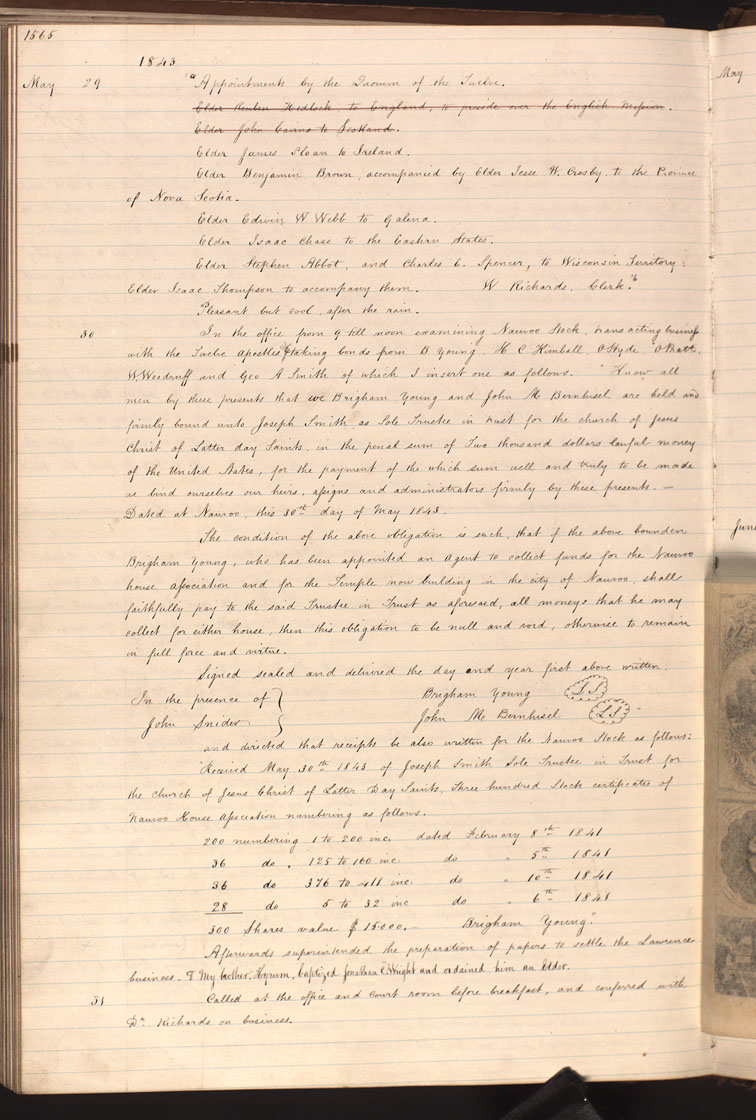 1565
1843
May 29 "Appointments by the Quorum of the Twelve.
Elder Reuben Hedlock to England, to preside over the English Mission.
Elder John Cairns to Scotland.
Elder James Sloan to Ireland.
Elder Benjamin Brown, accompanied by Elder Jesse W. Crosby, to the Province
of Nova Scotia.
Elder Edwin W Webb to Galena.
Elder Isaac Chase to the Eastern States.
Elder Stephen Abbot, and Charles C. Spencer, to Wisconsin Territory;
Elder Isaac Thompson to accompany them. W Richards, Clerk."
Pleasant but cool after the rain.
30 In the office from 9 till noon examining Nauvoo Stock, transacting business
with the Twelve Apostles & taking bonds from B Young H C Kimball, O Hyde, O Pratt,
W. Woodruff and Geo A Smith of which I insert one as follows. "Know all
men by these presents that we Brigham Young and John M Bernhisel are held and
firmly bound unto Joseph Smith as Sole Trustee in trust for the church of Jesus
Christ of Latter day Saints, in the penal sum of Two thousand dollars lawful money
of the United States, for the payment of the which sum well and truly to be made
we bind ourselves our heirs, assigns and administrators firmly by these presents. —
Dated at Nauvoo, this 30th day of May 1843.
The condition of the above obligation is such, that if the above bounden
Brigham Young, who has been appointed an Agent to collect funds for the Nauvoo
house Association and for the Temple now building in the city of Nauvoo, shall
faithfully pay to the said Trustee in Trust as aforesaid, all moneys that he may
collect for either house, then this obligation to be null and void, otherwise to remain
in full force and virtue.
Signed sealed and delivered the day and year first above written.
In the presence of } Brigham Young L.S.
John Snider } John M Bernhisel L.S."
and directed that receipts be also written for the Nauvoo Stock as follows:
"Received May 30th 1843 of Joseph Smith Sole Trustee in Trust for
the church of Jesus Christ of Latter Day Saints, Three hundred Stock certificates of
Nauvoo House Association numbering as follows.
200 numbering 1 to 200 inc. dated February 8th 1841
36 do . 125 to 160 inc do " 5th 1841
36 do 376 to 411 inc. do " 10th 1841
28 do 5 to 32 inc do " 6th 1841
300 Shares value $15000. Brigham Young."
Afterwards superintended the preparation of papers to settle the Lawrence
business. & My brother, Hyrum, baptized Jonathan C. Wright and ordained him an Elder.
31 Called at the office and court room before breakfast, and conferred with
Dr Richards on business.
May
June